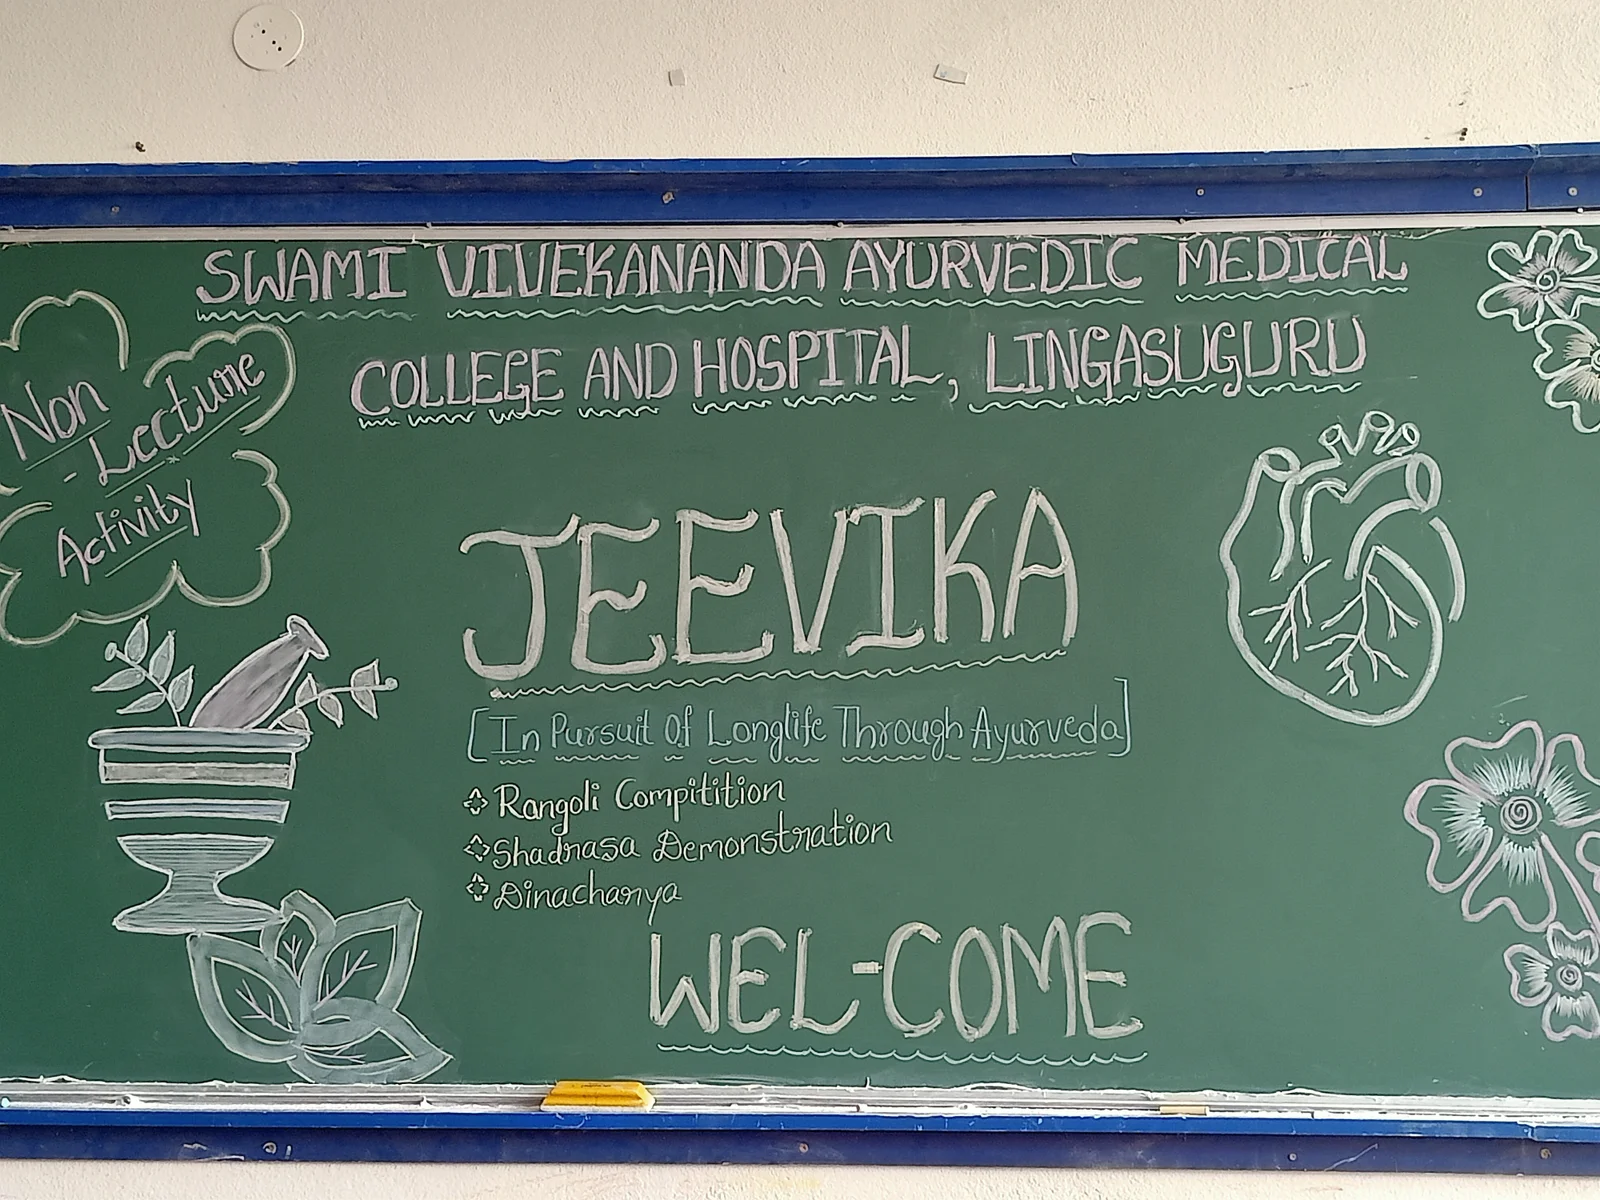 SWAMI VIVEKANANDA AYURVEDIC MEDICAL
COLLEGE AND HOSPITAL, LINGASUGURU
Non
- Lecture
Activity
JEEVIKA
[In Pursuit Of Longlife Through Ayurveda]
Rangoli Compitition
Shadrasa Demonstration
Dinacharya
WEL-COME